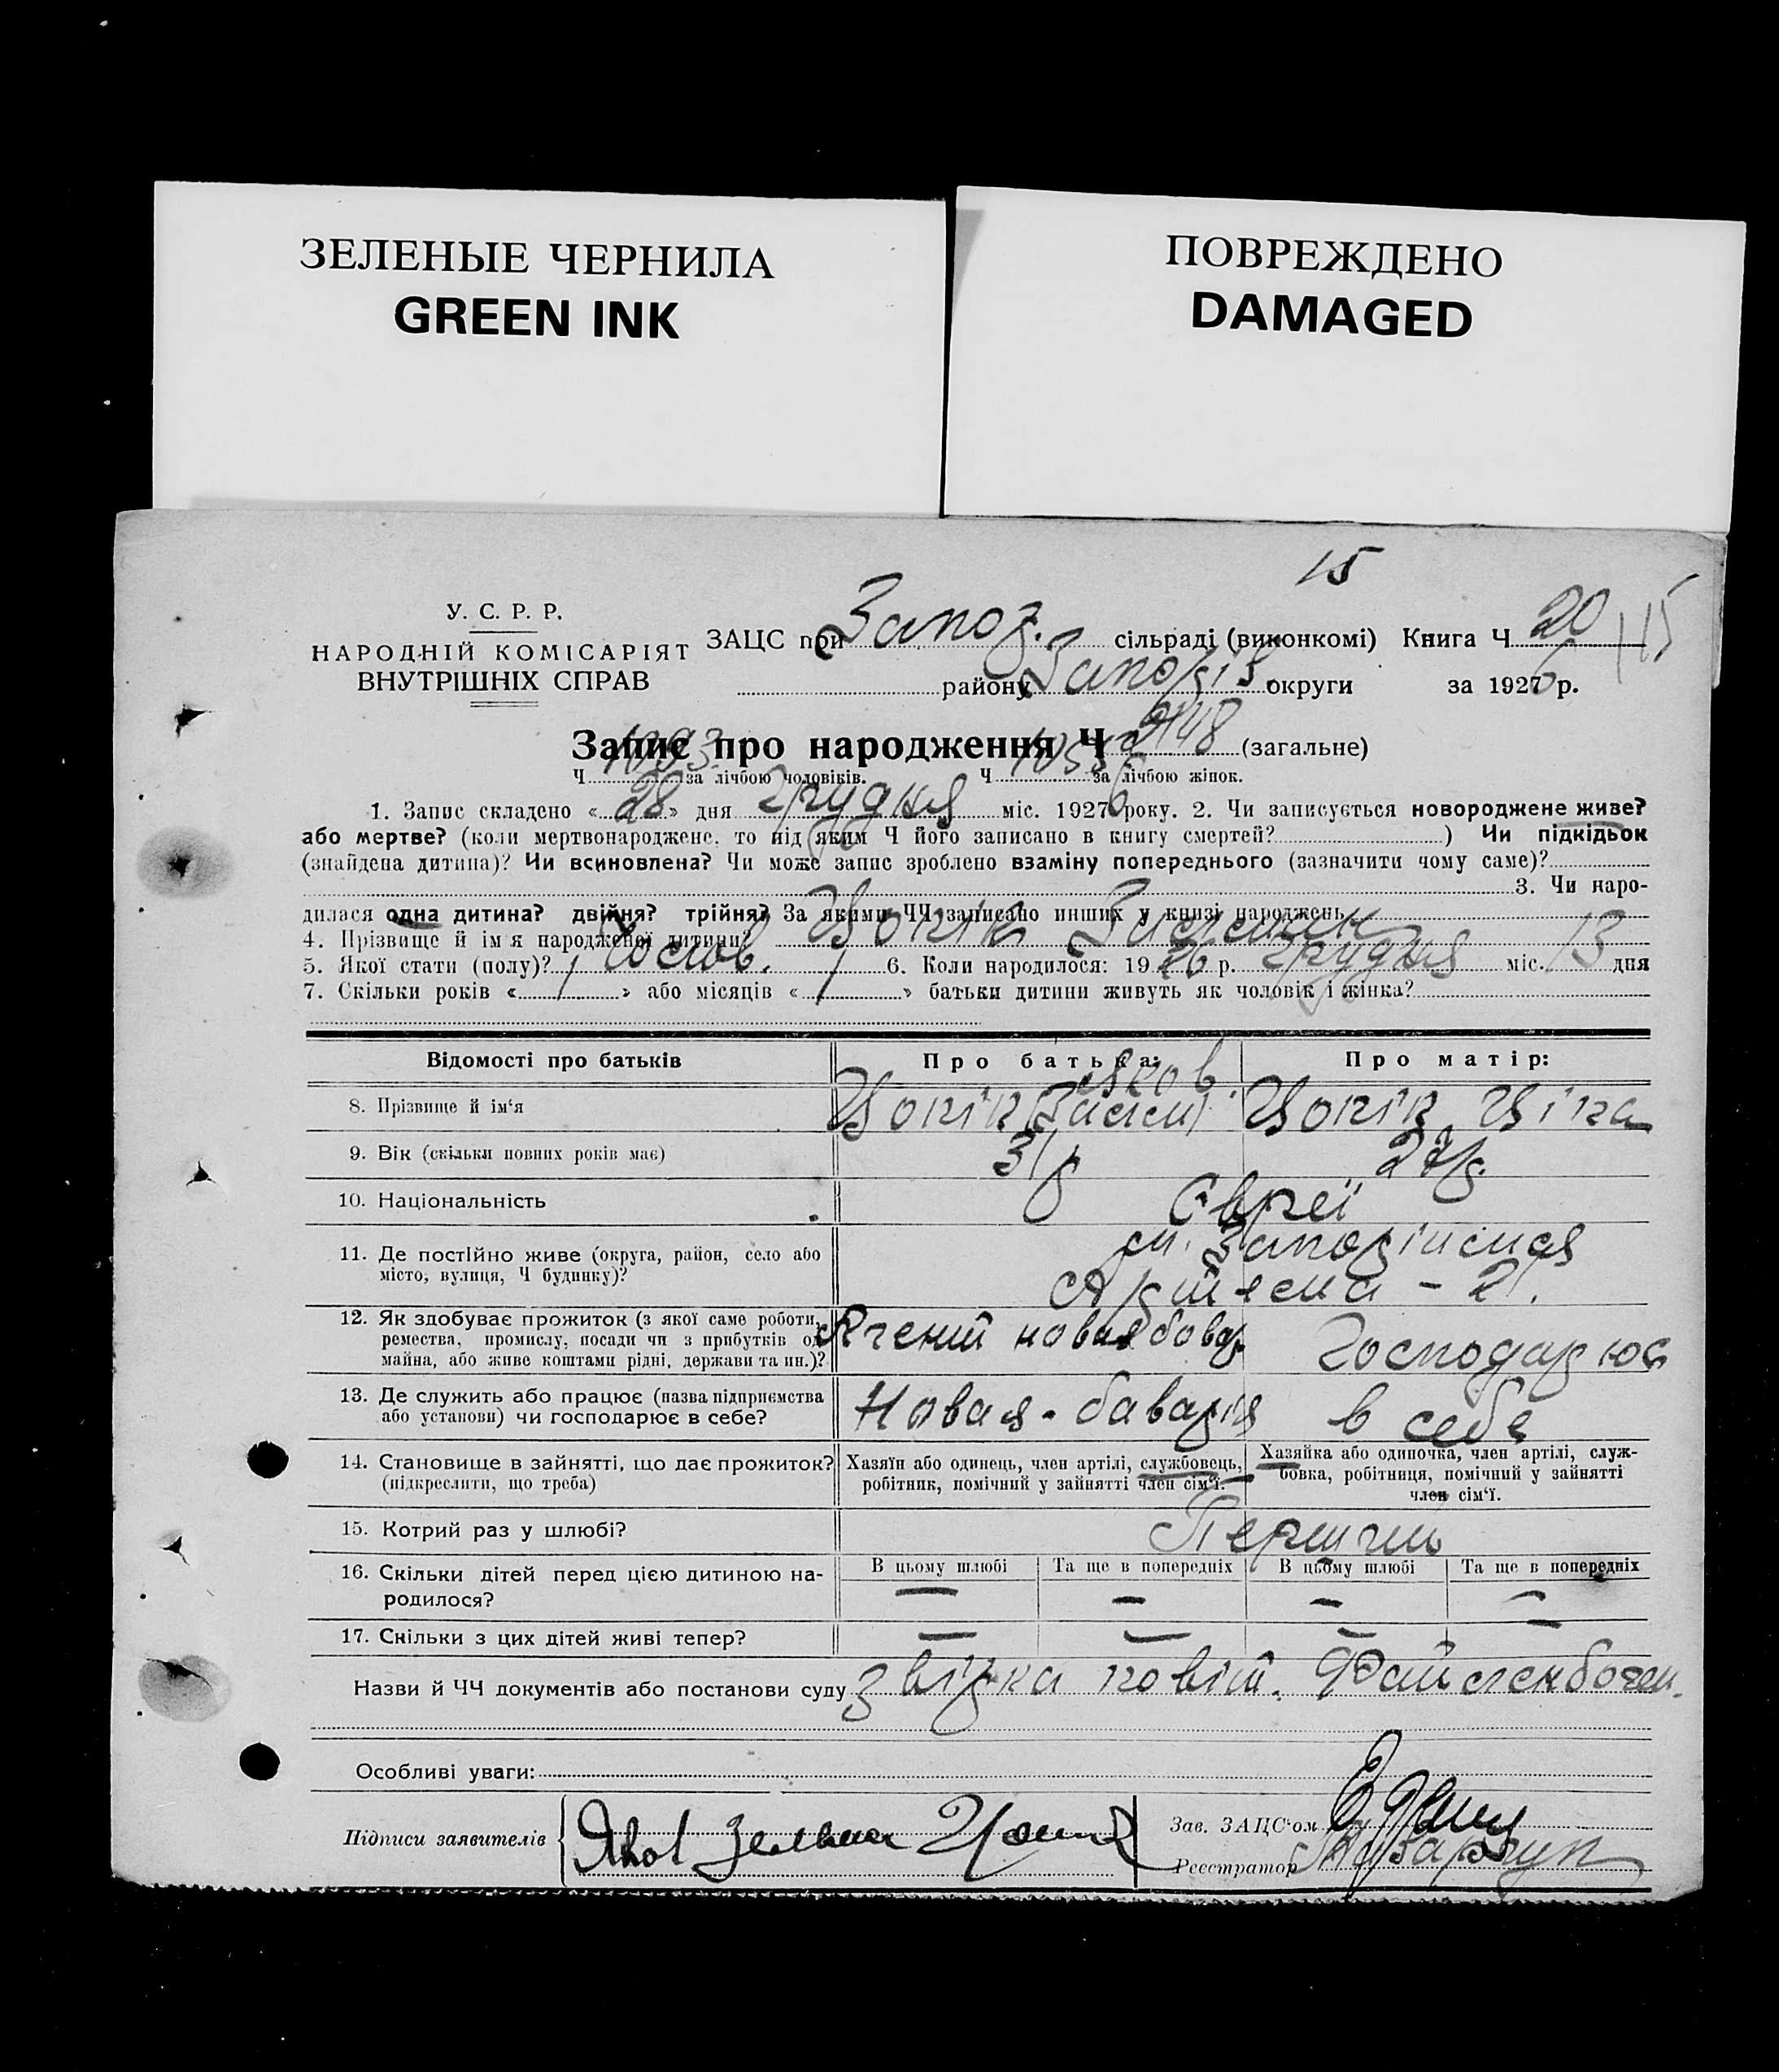 ЗЕЛЕНЫЕ ЧЕРНИЛА
GREEN INK
ПОВРЕЖДЕНО
DAMAGED
15
У. С. Р. Р.
НАРОДНІЙ КОМІСАРІЯТ
ВНУТРІШНІХ СПРАВ
ЗАЦС при Запоз. сільраді (виконкомі) Книга Ч 20
115
району округи за 1926 р.
Запис про народження Ч 2148 (загальне)
Ч 1093 за лічбою чоловіків. Ч 1055 за лічбою жінок.
1. Запис складено «28» дня Грудня міс. 1926 року. 2. Чи записується новороджене живе?
або мертве? (коли мертвонароджене, то під яким Ч його записано в книгу смертей? ) Чи підкідьок
(знайдена дитина)? Чи всиновлена? Чи може запис зроблено взаміну попереднього (зазначити чому саме)?
3. Чи наро-
дилася одна дитина? двійня? трійня? За якими ЧЧ записано инших у книзі народжень
4. Прізвище й ім'я народженої дитини?
5. Якої стати (полу)? Чолов. 6. Коли народилося: 1926 р. Грудня міс. 13 дня
7. Скільки років « » або місяців « » батьки дитини живуть як чоловік і жінка?
Відомості про батьків
Про батька:
Про матір:
Яков
8. Прізвище й ім'я
9. Вік (скільки повних років має) 31р 27р.
10. Національність Євреї
11. Де постійно живе (округа, район, село або
місто, вулиця, Ч будинку)?
Артема - 21.
12. Як здобуває прожиток (з якої саме роботи,
ремества, промислу, посади чи з прибутків од
майна, або живе коштами рідні, держави та ин.)?
Агент
Господарює
13. Де служить або працює (назва підприємства
або установи) чи господарює в себе?
Новая-бавария
в себе
14. Становище в зайнятті, що дає прожиток?
(підкреслити, що треба)
Хазяїн або одинець, член артілі, службовець,
робітник, помічний у зайнятті член сім'ї.
Хазяйка або одиночка, член артілі, служ-
бовка, робітниця, помічний у зайнятті
член сім'ї.
15. Котрий раз у шлюбі?
16. Скільки дітей перед цією дитиною на-
родилося?
В цьому шлюбі Та ще в попередніх В цьому шлюбі Та ще в попередніх
— — — —
17. Скільки з цих дітей живі тепер? — — — —
Назви й ЧЧ документів або постанови суду повіт.
Особливі уваги:
Підписи заявителів
Зав. ЗАЦС'ом
Реєстратор